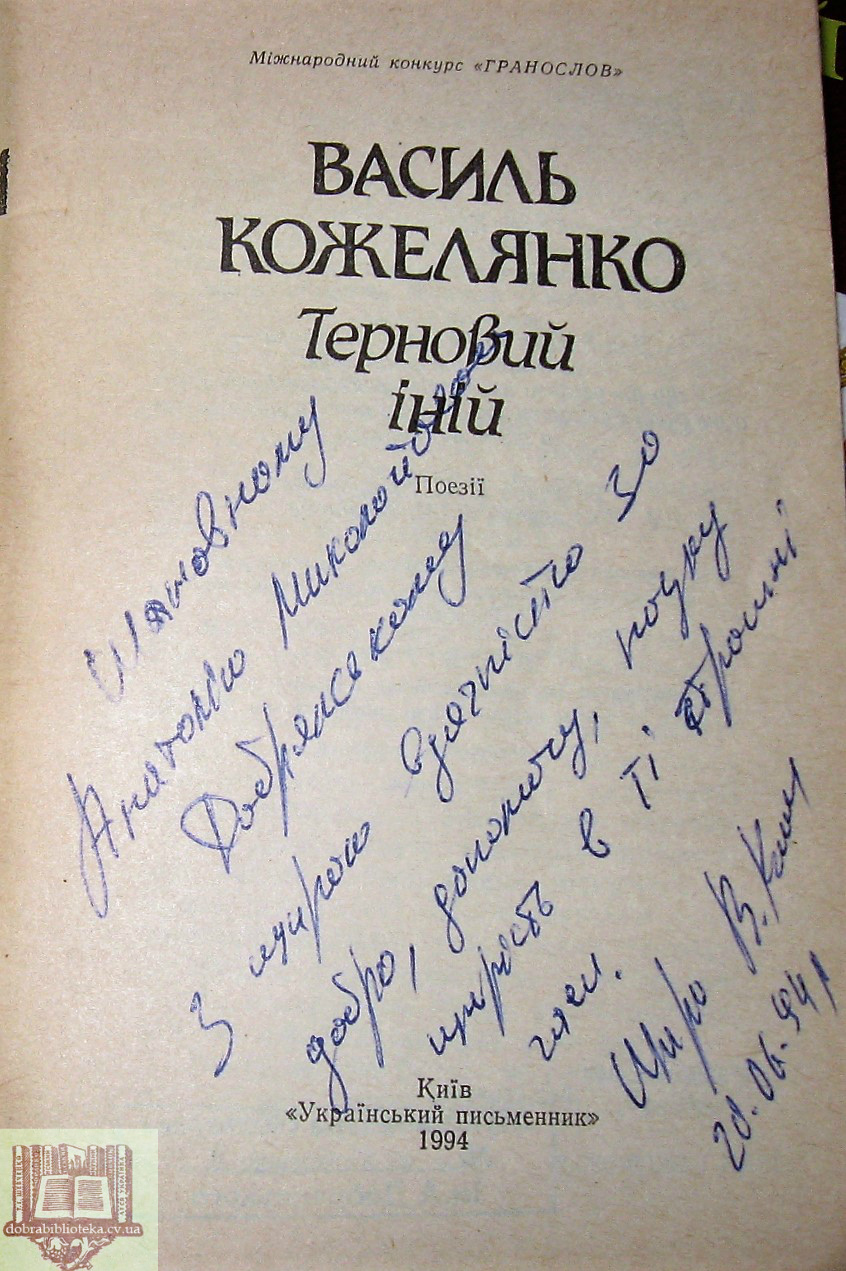 Міжнародний конкурс «ГРАНОСЛОВ»
ВАСИЛЬ
КОЖЕЛЯНКО
Терновий
іній
Поезії
Шановному
Анатолію Миколайовичу
Добрянському
З щирою вдячністю за
добро, допомогу, науку
щирість в ті страшні
часи.
Щиро В. Кож
20.06.94 р
Київ
«Український письменник»
1994
dobrabiblioteka.cv.ua